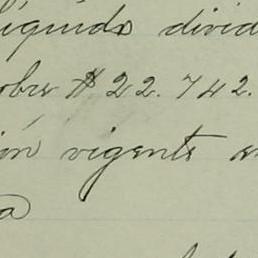 líquido divid
obre $22.742.
ión vigente e
a